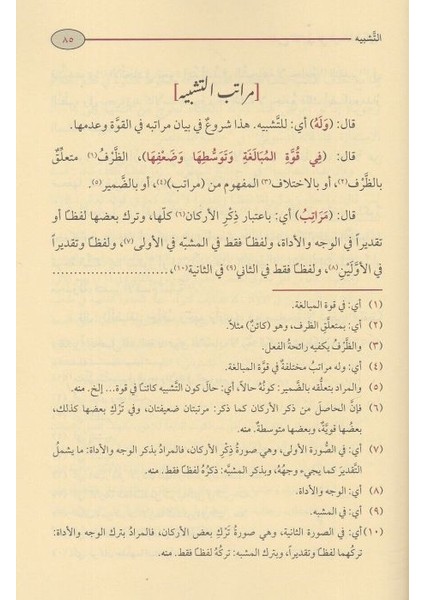 التَّشبيه
٨٥
[مراتب التشبيه]
قال: (وَلَهُ) أي: للتَّشبيه. هذا شروعٌ في بيان مراتبه في القوَّة وعدمها.
قال: (فِي قُوَّةِ المُبَالَغَةِ وَتَوَسُّطِهَا وَضَعْفِهَا)، الظَّرْفُ(١) متعلِّقٌ
بالظَّرف(٢)، أو بالاختلاف(٣) المفهوم من (مراتب)(٤)، أو بالضَّمير(٥).
قال: (مَرَاتِبُ) أي: باعتبار ذِكْرِ الأركان(٦) كلّها، وترك بعضها لفظًا أو
تقديراً في الوجه والأداة، ولفظًا فقط في المشبّه في الأولى(٧)، ولفظًا وتقديراً
في الأوَّلَيْنِ(٨)، ولفظًا فقط في الثاني(٩) في الثانية(١٠)،........................
(١) أي: في قوة المبالغة.
(٢) أي: بمتعلَّق الظرف، وهو (كائنٌ) مثلاً.
(٣) والظَّرْفُ يكفيه رائحةُ الفعل.
(٤) أي: وله مراتبُ مختلفةٌ في قوَّة المبالغة.
(٥) والمراد بتعلُّقه بالضَّمير: كونُهُ حالاً، أي: حال كون التَّشبيه كائناً في قوة... إلخ. منه.
(٦) فإنَّ الحاصل من ذكر الأركان كما ذكر: مرتبتان ضعيفتان، وفي تَرْكِ بعضها كذلك،
بعضُها قويَّةٌ، وبعضها متوسطةٌ. منه.
(٧) أي: في الصُّورة الأولى، وهي صورةُ ذِكْرِ الأركان، فالمراد بذكر الوجه والأداة: ما يشملُ
التَّقديرَ كما يجيء وجهُهُ، وبذكر المشبَّه: ذكرُهُ لفظًا فقط. منه.
(٨) أي: الوجه والأداة.
(٩) أي: في المشبه.
(١٠) أي: في الصورة الثانية، وهي صورةُ تَرْكِ بعض الأركان، فالمراد بترك الوجه والأداة:
تركهما لفظًا وتقديراً، وبترك المشبه: تركُهُ لفظًا فقط. منه.